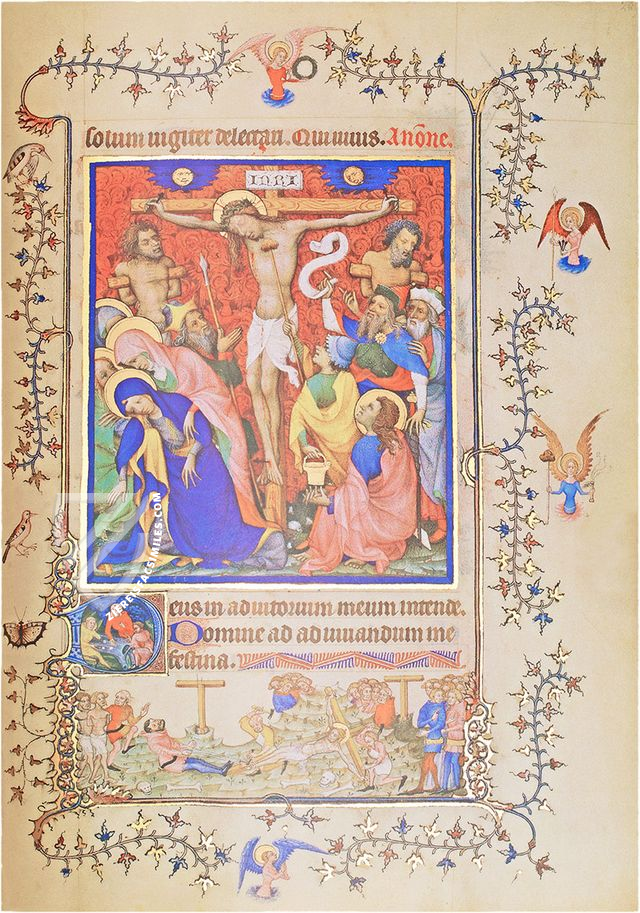 solum iugiter delectari. Qui uiuis. A none.
INRI
Deus in adiutorium meum intende.
Domine ad adiuuandum me
festina.
FACSIMILES.COM